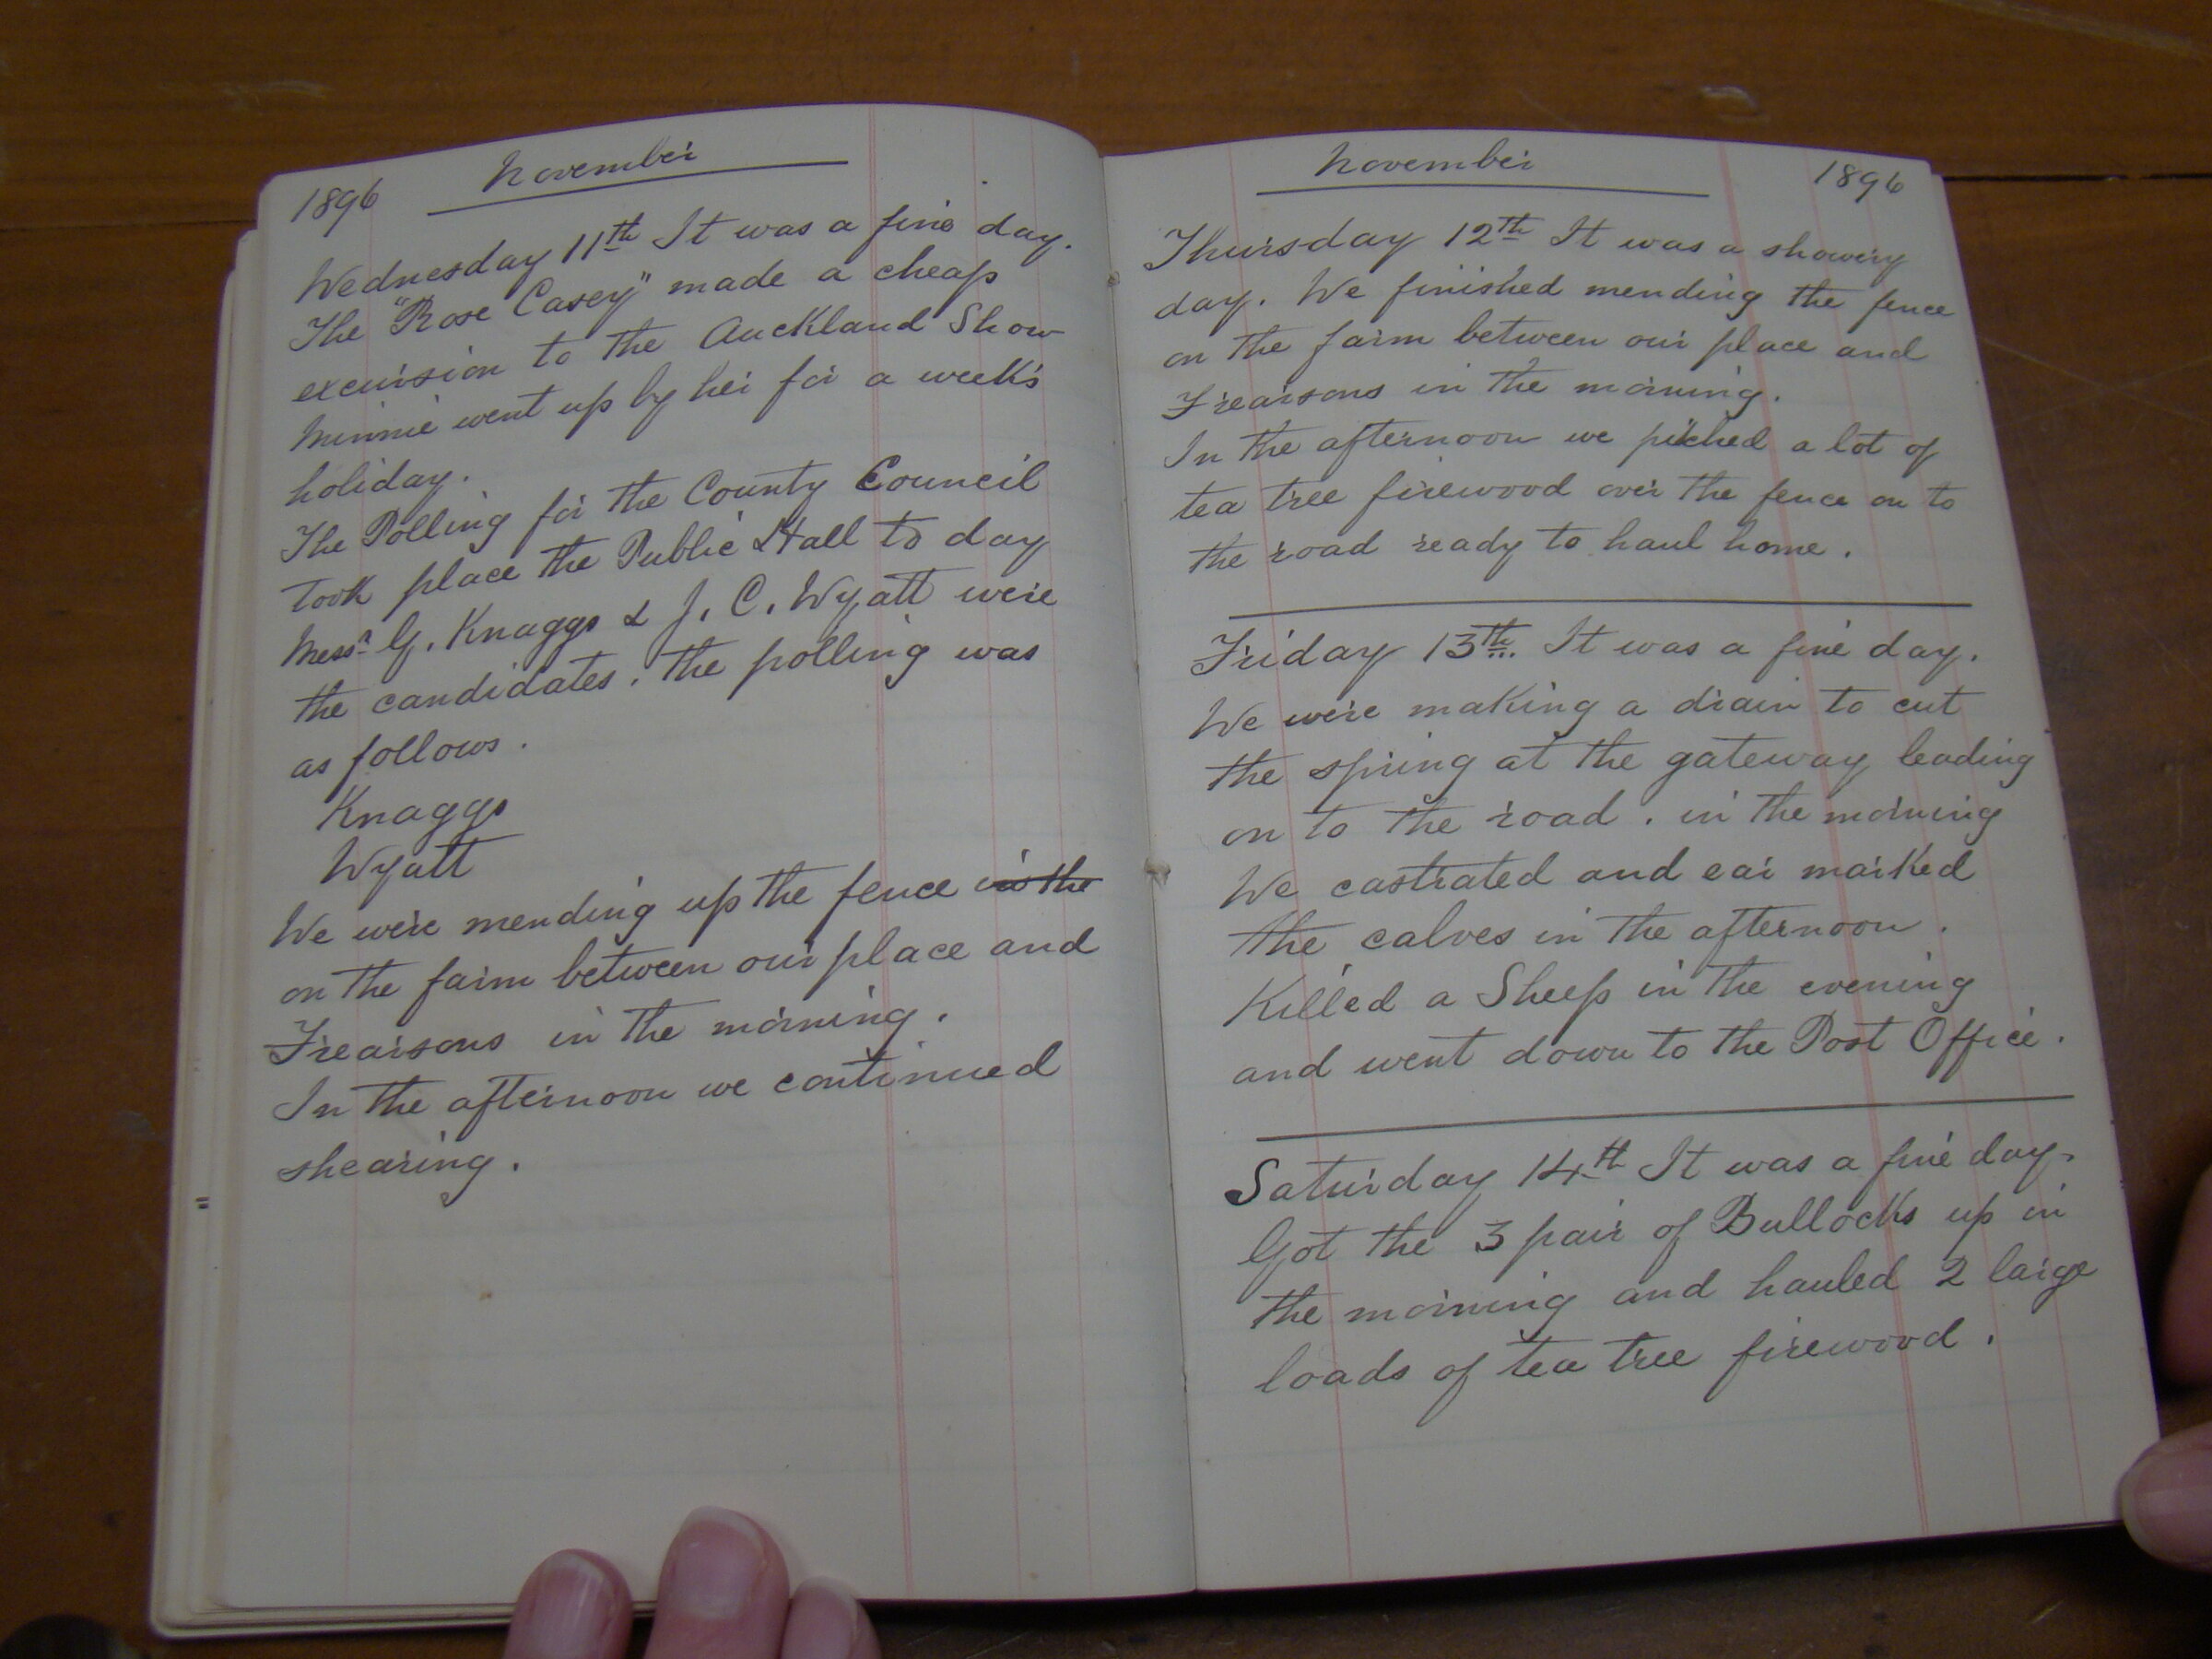 1896 November
Wednesday 11th It was a fine day.
The "Rose Casey" made a cheap
excursion to the Auckland Show
Minnie went up by her for a week's
holiday.
The Polling for the County Council
took place the Public Hall to day
Messrs G. Knaggs & J. C. Wyatt were
the candidates. the polling was
as follows.
Knaggs
Wyatt
We were mending up the fence in the
on the farm between our place and
Frearsons in the morning.
In the afternoon we continued
shearing.
November 1896
Thursday 12th It was a showery
day. We finished mending the fence
on the farm between our place and
Frearsons in the morning.
In the afternoon we pitched a lot of
tea tree firewood over the fence on to
the road ready to haul home.
Friday 13th. It was a fine day.
We were making a drain to cut
the spring at the gateway leading
on to the road. in the morning
We castrated and ear marked
the calves in the afternoon.
Killed a Sheep in the evening
and went down to the Post Office.
Saturday 14th It was a fine day.
Got the 3 pair of Bullocks up in
the morning and hauled 2 large
loads of tea tree firewood.